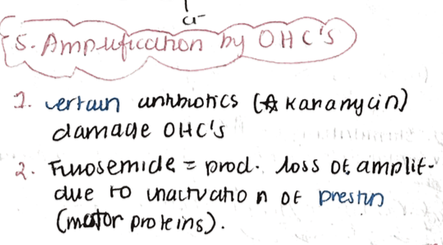 cl-
5. Amplification by OHC's
1. certain antibiotics (Kanamycin)
damage OHC's
2. Furosemide = prod. loss of amplit-
due to inactivation of prestin
(motor proteins).